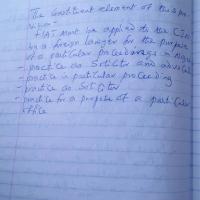 The constituent element of the s pro
vision -
+ (A) must be applied to the CJN
by a foreign lawyer for the purpose
of a particular proceedings in Nigeria
- practice as Solicitor and advocate
- practice in particular proceeding
- practice as Solicitor
- practice for a purpose of a particular
office